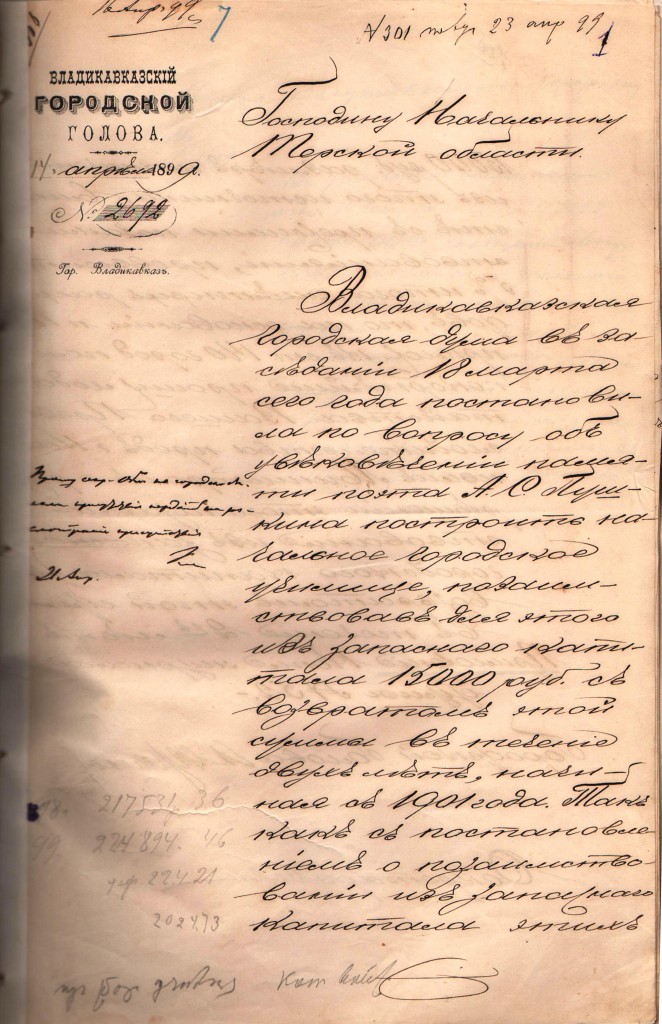 16 апр. 99
7
№ 301 23 апр 99
1
ВЛАДИКАВКАЗСКІЙ
ГОРОДСКОЙ
ГОЛОВА.
14 апрѣля 1899 г.
№ 2692
Гор. Владикавказъ.
Господину Начальнику
Терской области.
Владикавказская
городская дума въ за-
сѣданіи 18 марта
сего года постанови-
ла по вопросу объ
увѣковѣченіи памя-
ти поэта А. С. Пуш-
кина построить на-
чальное городское
училище, позаим-
ствовавъ для этого
изъ запаснаго капи-
тала 15000 руб. съ
возвратомъ этой
суммы въ теченіе
двухъ лѣтъ, начи-
ная съ 1901 года. Такъ
какъ съ постановле-
ніемъ о позаимство-
ваніи изъ запаснаго
капитала этихъ
21 апр.
217531. 36
224894. 46